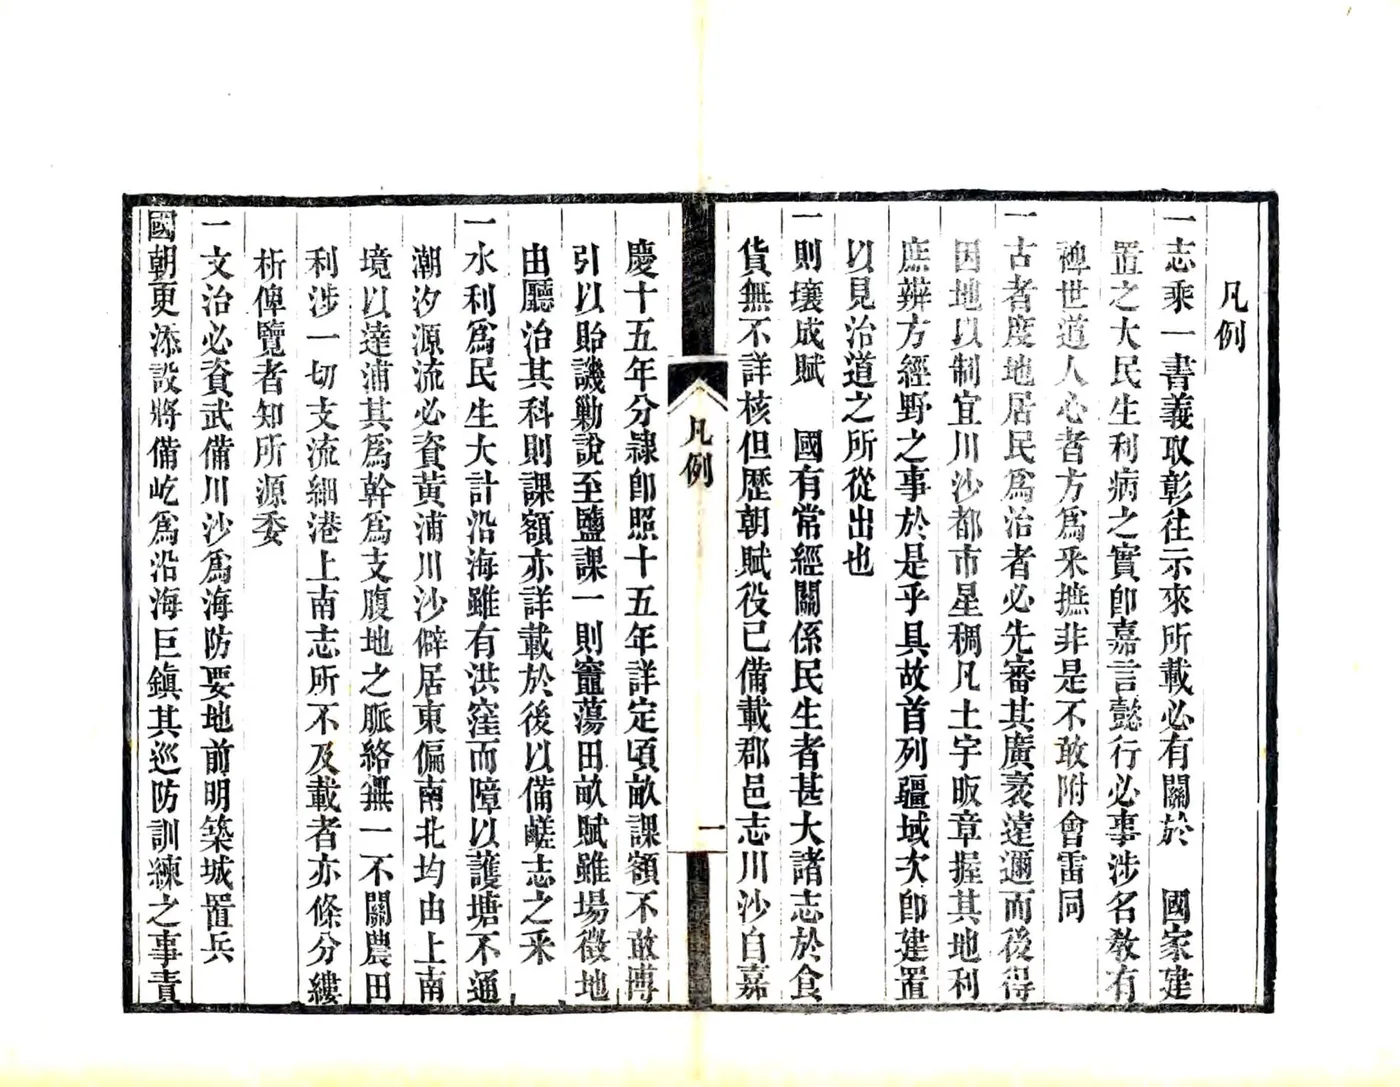 凡例
一志乘一書義取彰往示來所載必有關於　國家建
置之大民生利病之實卽嘉言懿行必事涉名敎有
裨世道人心者方爲釆摭非是不敢附會雷同
一古者度地居民爲治者必先審其廣袤遠邇而後得
因地以制宜川沙都市星稠凡土宇昄章握其地利
庶辨方經野之事於是乎具故首列疆域次卽建置
以見治道之所從出也
一則壤成賦　國有常經關係民生者甚大諸志於食
貨無不詳核但歷朝賦役已備載郡邑志川沙自嘉
凡例
一
慶十五年分隷卽照十五年詳定頃畝課額不敢慱
引以貽譏勦說至鹽課一則竈蕩田畝賦雖場徵地
由廳治其科則課額亦詳載於後以備鹺志之釆
一水利爲民生大計沿海雖有洪窪而障以護塘不通
潮汐源流必資黃浦川沙僻居東偏南北均由上南
境以達浦其爲幹爲支腹地之脈絡無一不關農田
利涉一切支流細港上南志所不及載者亦條分縷
析俾覽者知所源委
一文治必資武備川沙爲海防要地前明築城置兵
國朝更添設將備屹爲沿海巨鎭其巡防訓練之事責